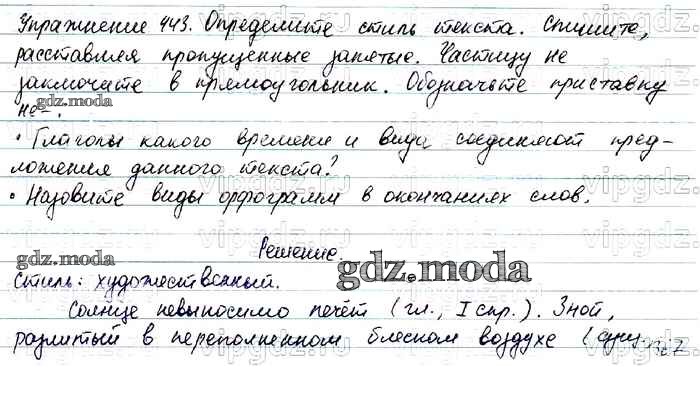 Упражнение 443. Определите стиль текста. Спишите,
расставляя пропущенные запятые. Частицу не
заключите в прямоугольник. Обозначьте приставку
не-.
gdz.moda
• Глаголы какого времени и вида соединяют пред-
ложения данного текста?
• Назовите виды орфограмм в окончаниях слов.
Решение
gdz.moda
gdz.moda
Стиль: художественный.
Солнце невыносимо печёт (гл., I спр.). Зной,
разлитый в переполненном блеском воздухе (сущ.